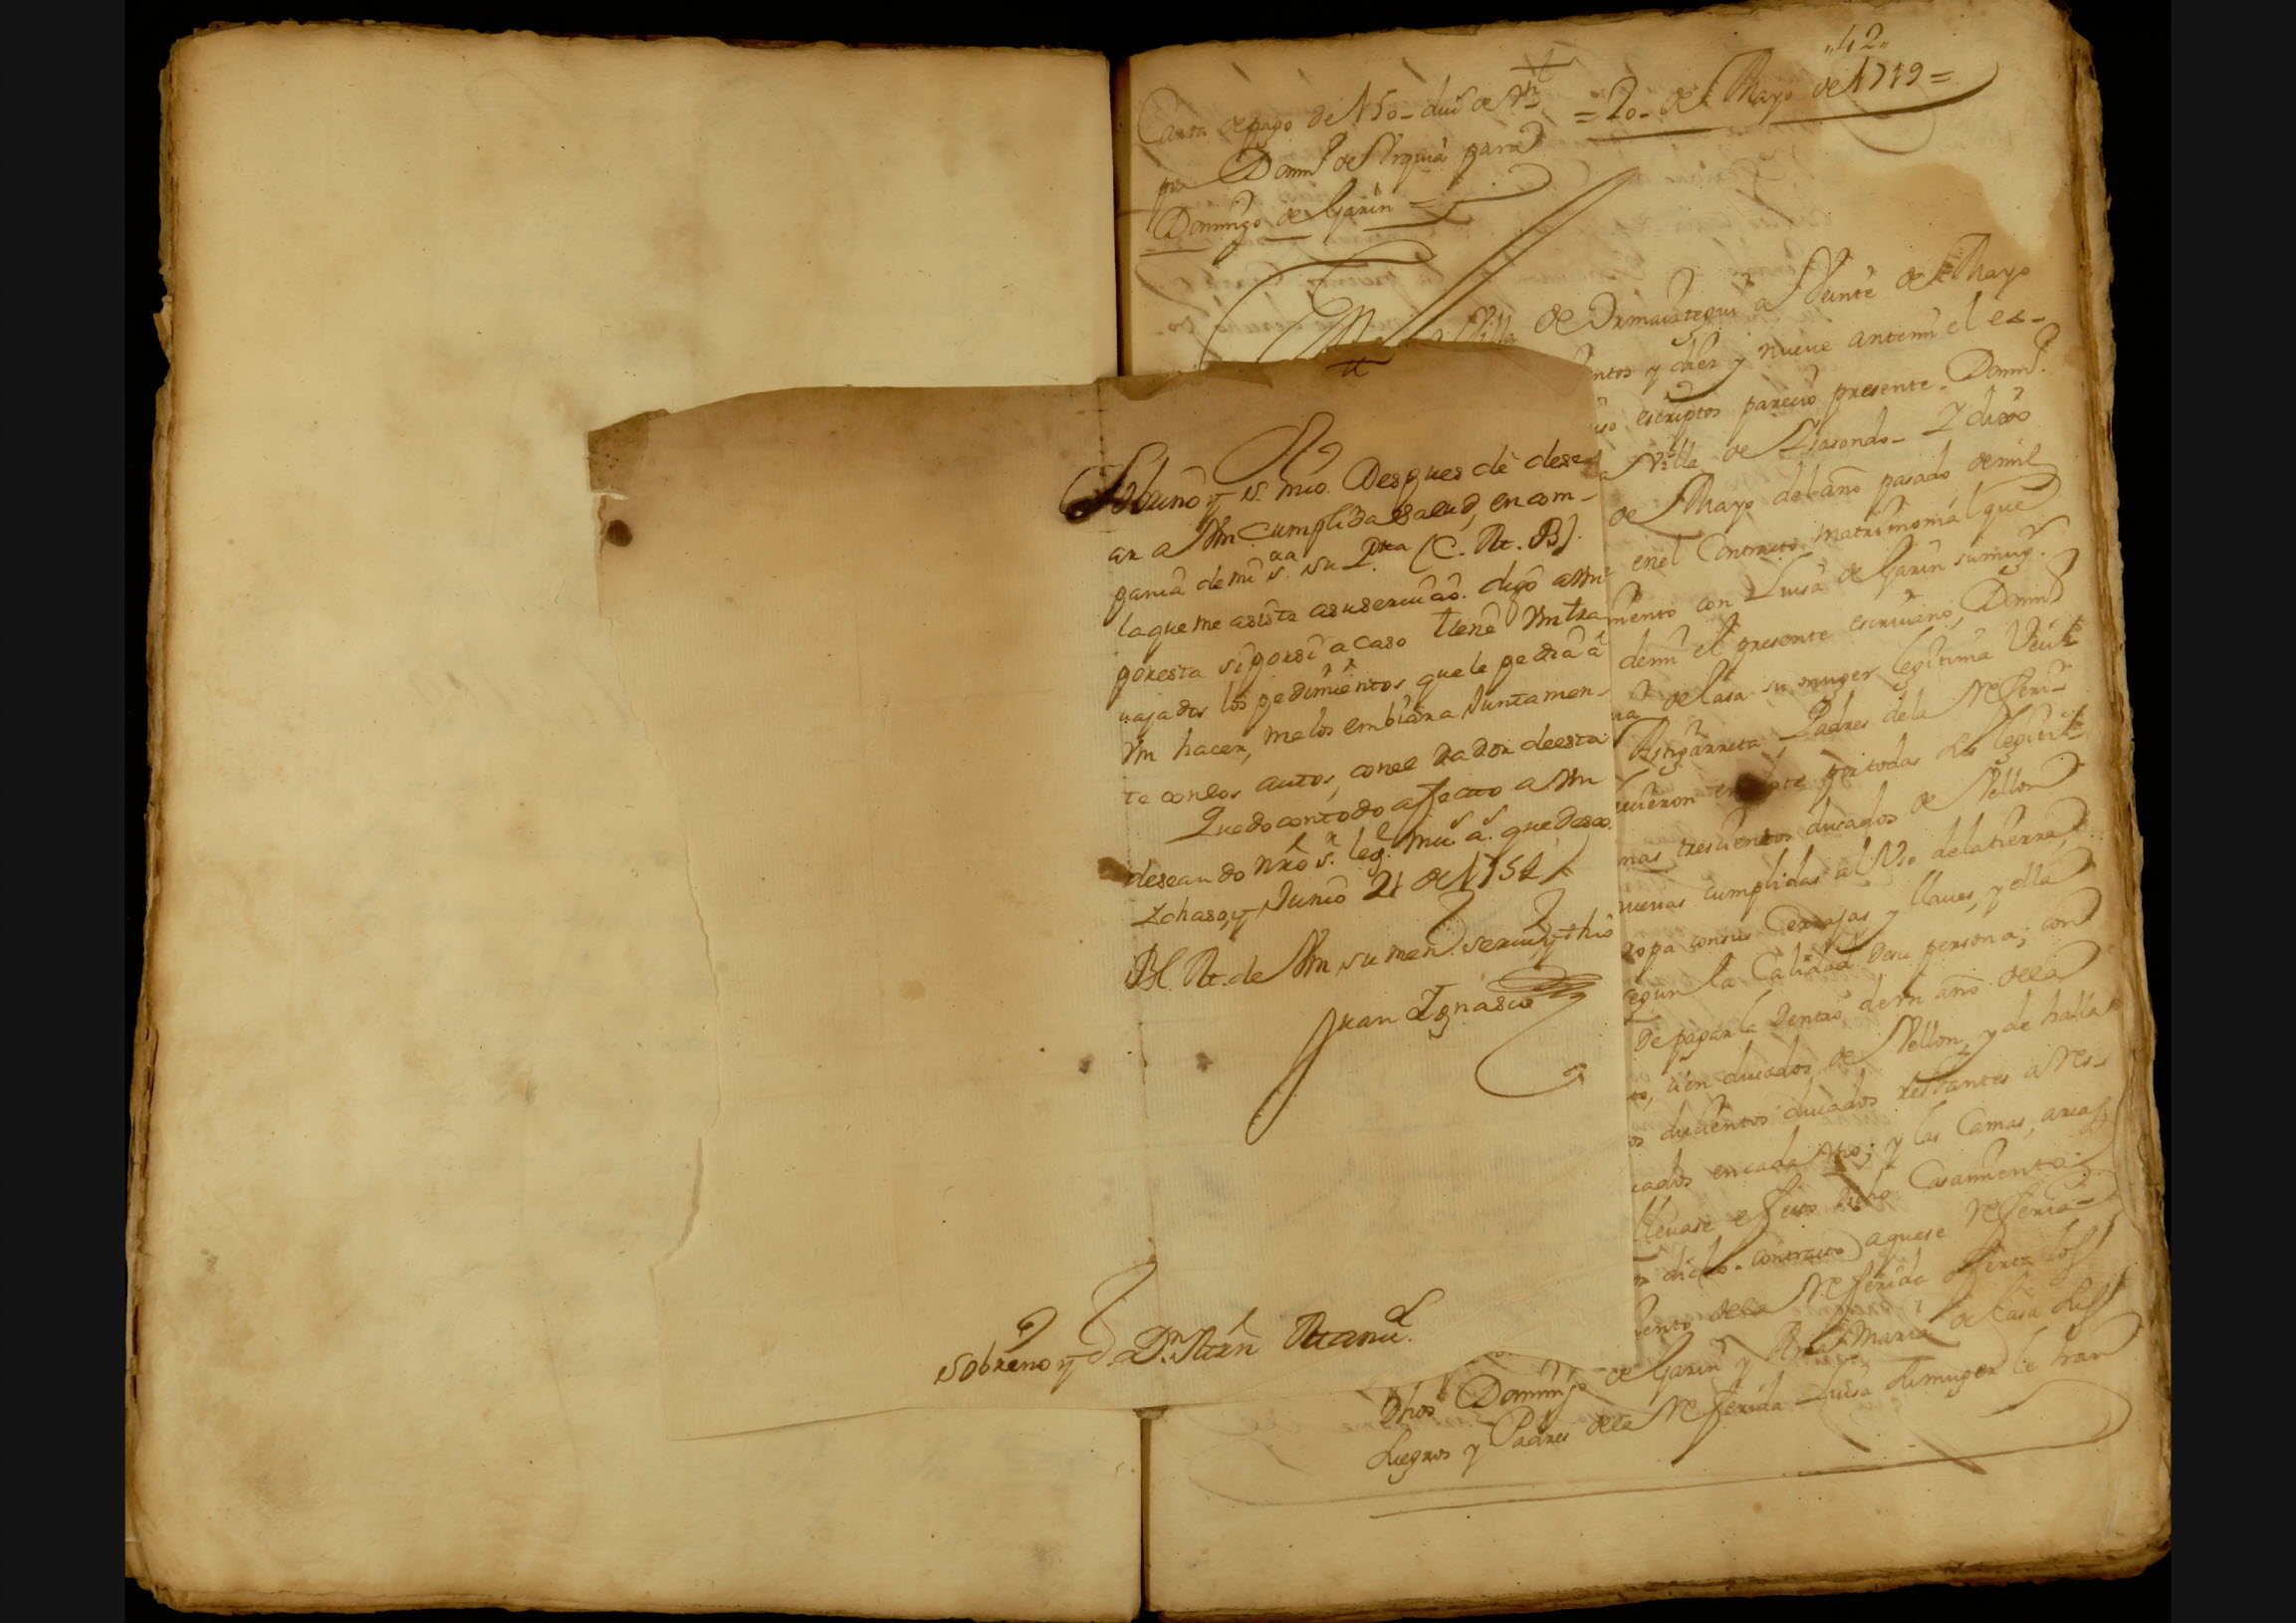 „42„
Carta de pago de 150_ duᵈˢ de Vⁿ
por Domᵒ de Vrquia para
Domingo de Garin =
= 20_ de Mayo de 1719 =
Villa de Ormaiztegui a Veinte de Mayo
ntos y diez y nueve antemi el es_
escriptos parecio presente Domᵒ
Villa de Ysasondo_ Y dixo
de Mayo del año pasado de mil
en el Contracto matrimonial que
mento con Luisa de Garin su mugʳ.
de mi el presente escriuano, Domᵒ
de Lasa su muger legitima Vecˢ
Astigarreta, Padres de la Referi_
cieron en dote por todas sus legitiˢ
mas trescientos ducados de Vellon
nueuas cumplidas al Vso de la tierra,
ropa consus Cerrajas y llaues, y ella
segun la Calidad desu persona; con
de pagar la dentro de vn año de la
cien ducados de Vellon, y de halla
os ducientos ducados restantes a Res_
cados en cada año; y las Camas, arcas
lleuase efecto dicho Casamiento
dicho contracto aquese Referia_
ento de la Referida oferta los
Dhos Domingo de Garin y Ana Maria de Lasa sus
suegros y Padres de la Referida Luisa su muger le han
Sobrino y Sʳ. mio. Despues de dese
ar a Vm Cumplida salud, en com_
pania de mi sʳᵃ. su Pᵐᵃ (C. M. B).
la que me asiste a su seruicio. digo a Vm
por esta si por si a caso tiene Vm tra
uajados los pedimientos que le pedia â
Vm hacer, me los embiara Juntamen_
te con los autos, con el dador de esta
Quedo con todo afecto a Vm
deseando nro sʳ. leg. muˢ aˢ. que deseo.
Ychaso, y Junio 21 de 1754
Bl. M. de Vm su menʳ seruʳ y thio
Juan Ignasio
Sobreno y Sʳ Dⁿ Mrn Manuˡ.